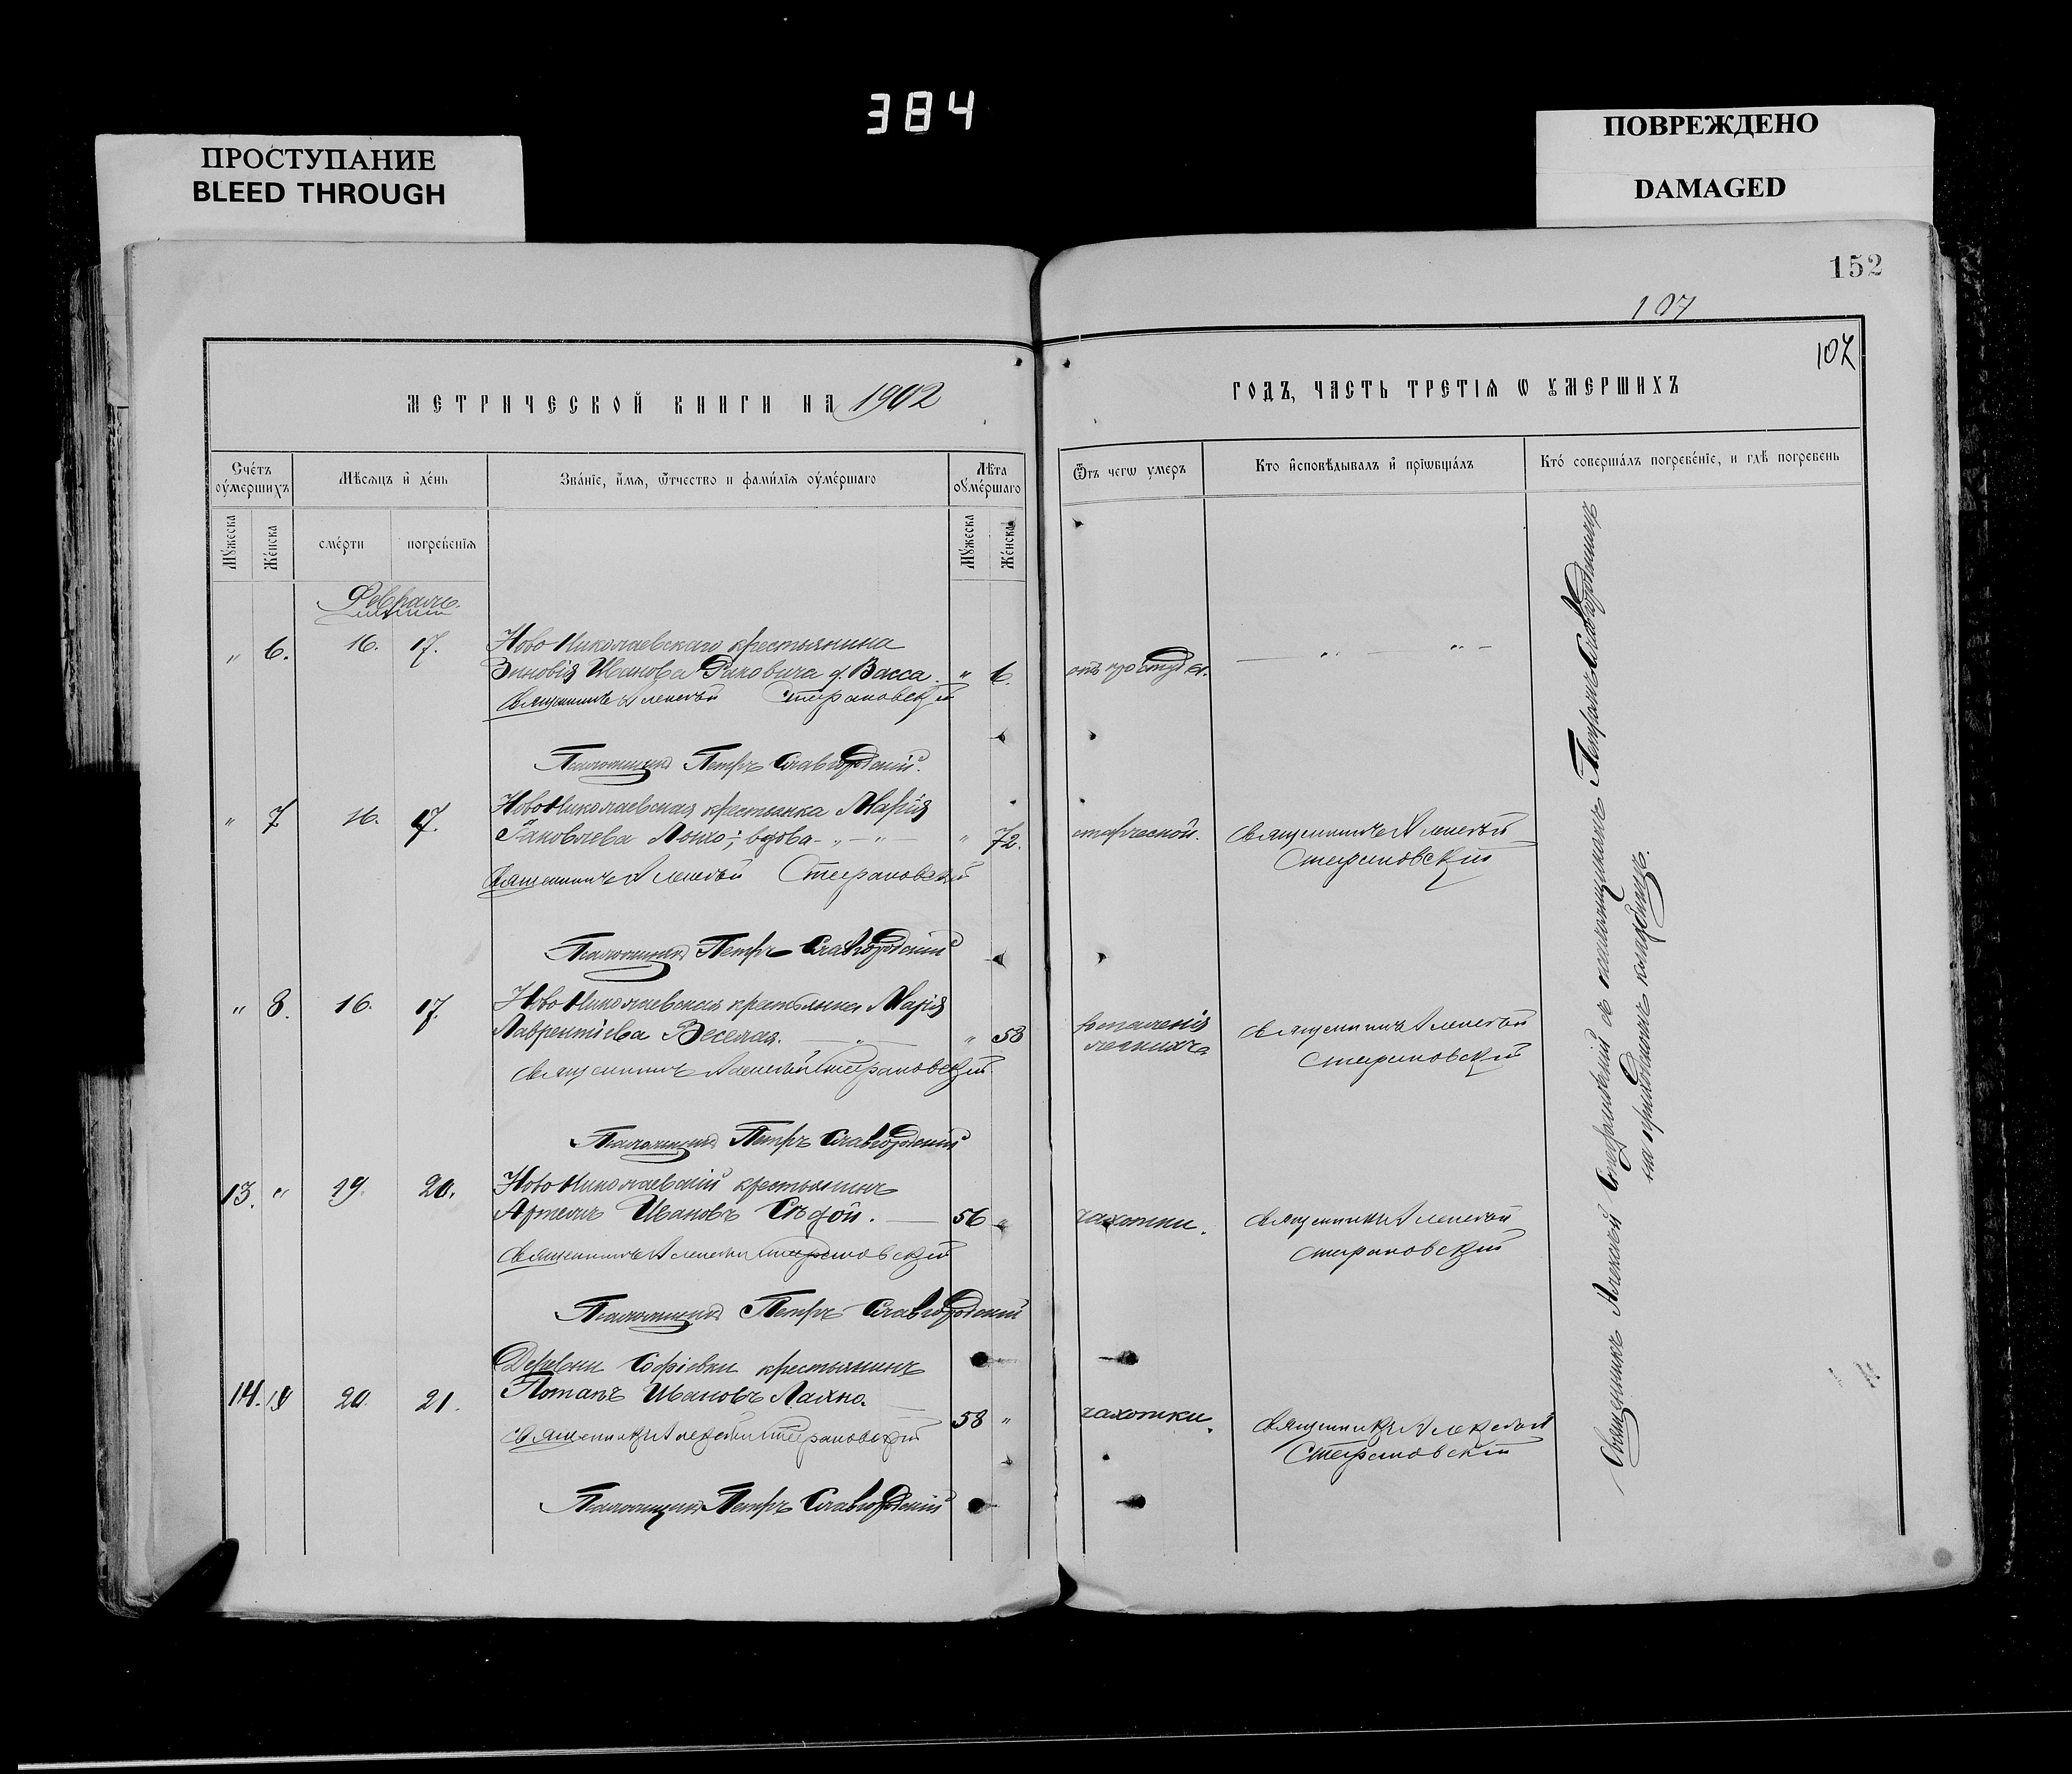 384
ПРОСТУПАНИЕ
BLEED THROUGH
ПОВРЕЖДЕНО
DAMAGED
152
107
107
МЕТРИЧЕСКОЙ КНИГИ НА 1902
ГОДЪ, ЧАСТЬ ТРЕТІѦ Ѡ ОУМЕРШИХЪ
Счётъ оумершихъ
Мѣсяцъ и день
Званіе, имя, ѿчество и фамилія оумершаго
Лѣта оумершаго
Ѿъ чегѡ умеръ
Кто исповѣдывалъ и пріѡбщалъ
Кто совершалъ погребеніе, и гдѣ погребенъ
Мужеска
Женска
смерти
погребенія
Мужеска
Женска
Февраль.
" 6. 16. 17. Ново Николаевскаго крестьянина
Зиновія Иванова Раковича д. Васса. " 6. отъ простуды.
Священникъ Алексѣй Стефановскій
Псаломщикъ Петръ Славгородскій.
" 7 16. 17. Ново Николаевская крестьянка Марія
Яковлева Лохно; вдова " 72. старческой. Священникъ Алексѣй
Стефановскій
Священникъ Алексѣй Стефановскій
Псаломщикъ Петръ Славгородскій
" 8. 16. 17. Ново Николаевская крестьянка Марія
Лаврентіева Веселая. " 58 воспаленія легкихъ Священникъ Алексѣй
Стефановскій
Священникъ Алексѣй Стефановскій
Псаломщикъ Петръ Славгородскій
13. " 19. 20. Ново Николаевскій крестьянинъ
Артемъ Ивановъ Сѣдой. 56 " чахотки. Священникъ Алексѣй
Стефановскій
Священникъ Алексѣй Стефановскій
Псаломщикъ Петръ Славгородскій
Деревни Софіевки крестьянинъ
14. 20. 21. Потапъ Ивановъ Лахно. 58 " чахотки. Священникъ Алексѣй
Стефановскій
Священникъ Алексѣй Стефановскій
Псаломщикъ Петръ Славгородскій
Священникъ Алексѣй Стефановскій съ псаломщикомъ Петромъ Славгородскимъ
на приходскомъ кладбищѣ.